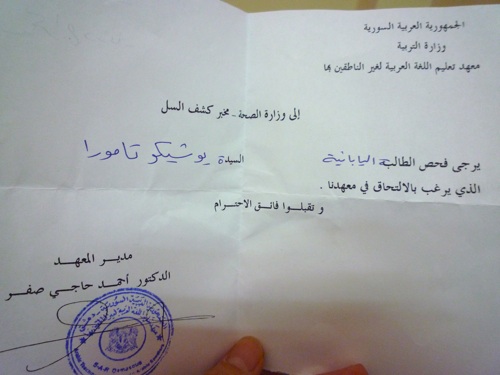 الجمهورية العربية السورية
وزارة التربية
معهد تعليم اللغة العربية لغير الناطقين بها
إلى وزارة الصحة - مخبر كشف السل
يرجى فحص الطالبة اليابانية السيدة يوشيكو تامورا
الذي يرغب بالالتحاق في معهدنا .
و تقبلوا فائق الاحترام
مدير المعهد
الدكتور أحمد حاجي صفر